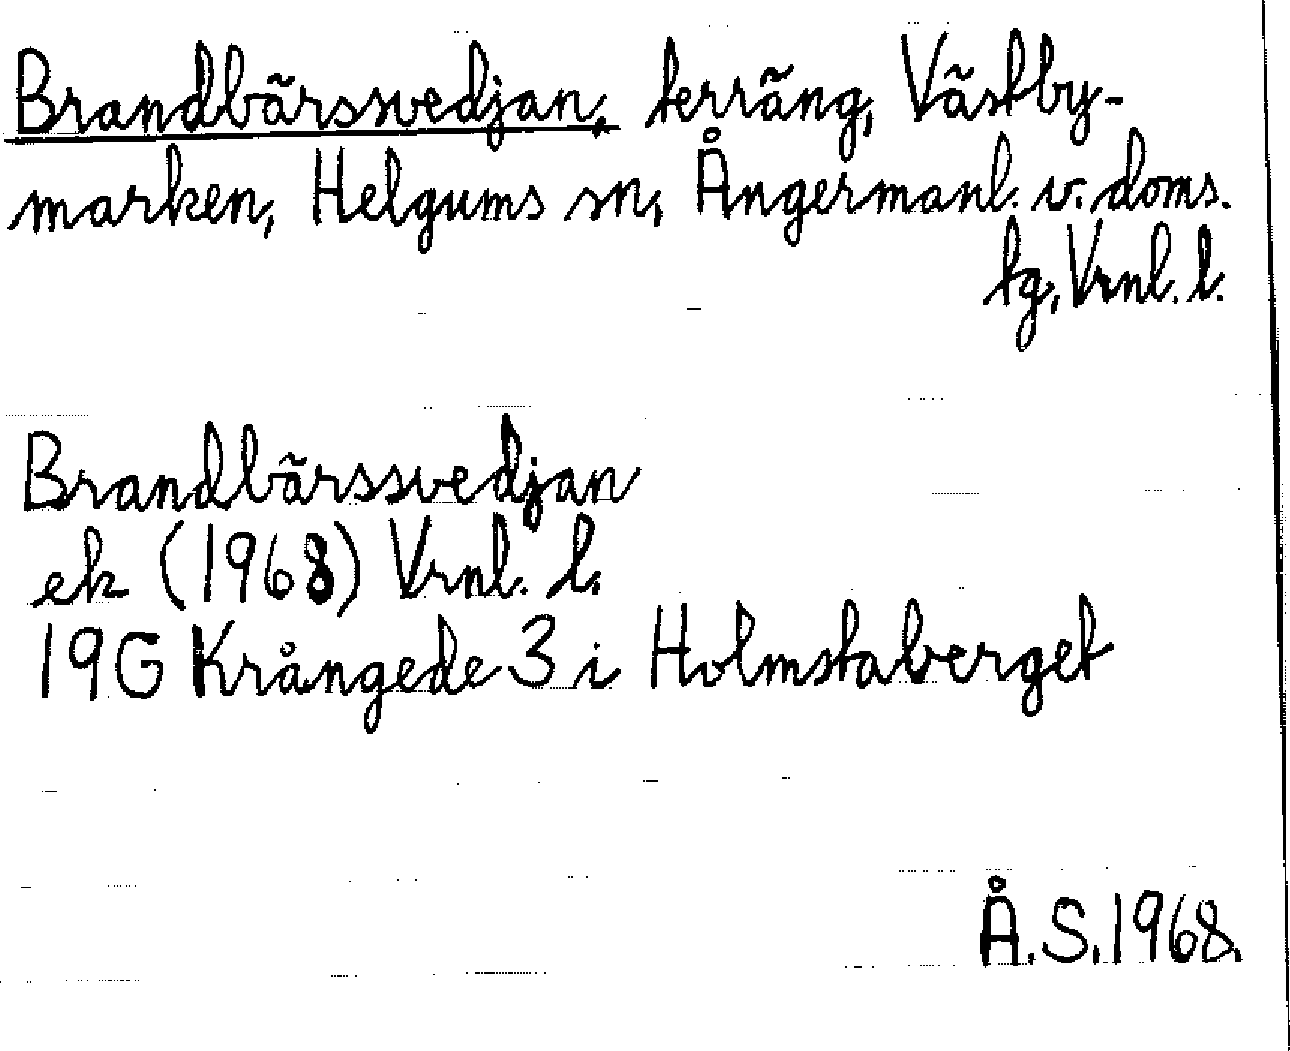 Brandbärssvedjan, terräng, Västby-
marken, Helgums sn, Ångermanl. v. doms.
tg, Vrnl. l.
Brandbärssvedjan
ek (1968) Vrnl. l.
19G Krångede 3 i Holmstaberget
Å.S. 1968.